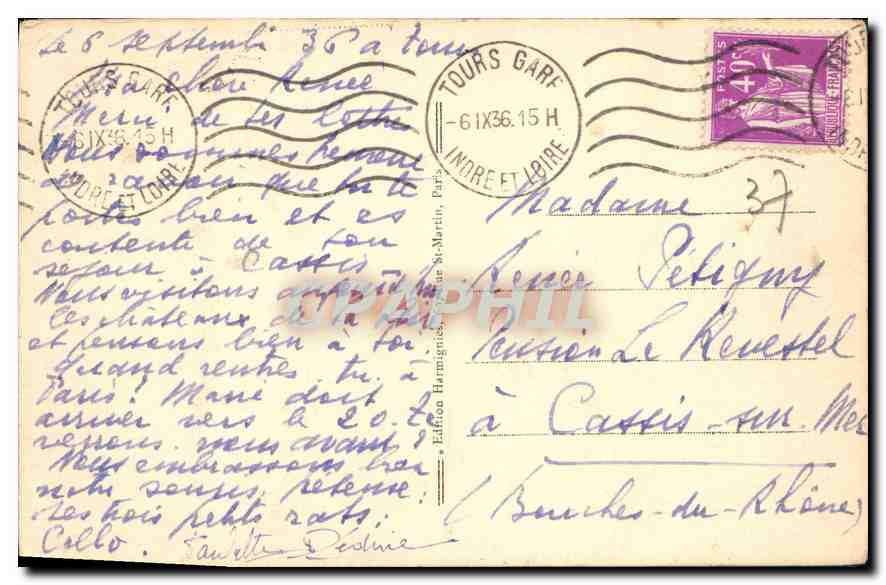 Le 6 Septembre 36 à Tours
Ma Chère Renée
Merci de tes lettres
Nous sommes
et que tu te
portes bien et es
contente de ton
séjour à Cassis.
Nous visitons
les châteaux de la
et pensons bien à toi.
Quand rentres tu à
Paris? doit
arriver vers le 20. Te
nous avant?
Nous embrassons bien
notre
Les trois petits rats:
Collo. Paulette
TOURS GARE
-6 IX36.15 H
INDRE ET LOIRE
TOURS GARE
-6 IX36.15 H
INDRE ET LOIRE
POSTES
40c
REPUBLIQUE FRANÇAISE
37
Edition Harmignies, Rue St-Martin, Paris
CPAPHIL
Madame
Renée Pétigny
Pension Le Revestel
à Cassis-sur-Mer
(Bouches-du-Rhône)